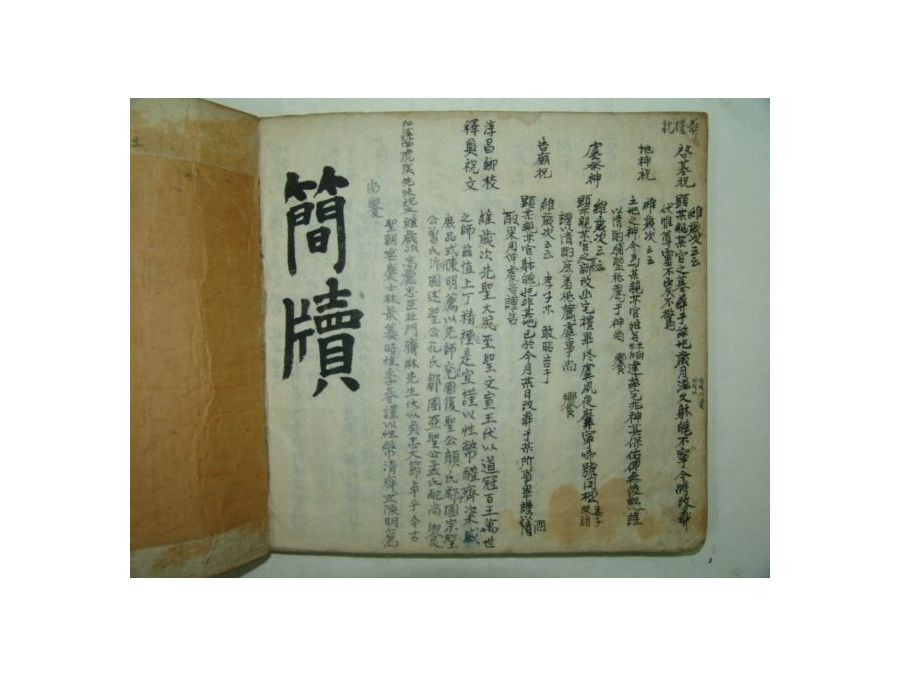 啓墓祝
維歲次云云
顯某親某官之墓葬于茲地歲月滋久體魄不寧今將改葬
伏惟尊靈不震不驚
地神祝
維歲次云云
土地之神今爲某親某官姓名建茲宅兆神其保佑俾無後艱謹
以淸酌脯醢祗薦于神尙 饗
虞祭祝
維歲次云云
顯某親某官之新改幽宅禮畢終虞夙夜靡寧啼號罔極
謹以清酌庶羞祗薦虞事尙 饗
告廟祝
維歲次云云 孝子某 敢昭告于
顯某親某官體魄托非其地已於今月某日改葬于某所
酌果用伸虔告謹告
淳昌鄕校
釋奠祝文
維歲次 先聖大成至聖文宣王伏以道冠百王萬世
之師茲値上丁精禋是宜謹以牲幣醴齊粢盛
展品式陳明薦以先師兗國復聖公顔氏郕國宗聖
公曾氏沂國述聖公孔氏鄒國亞聖公孟氏配尙饗
維歲次高麗忠臣杜門齋 先生伏以貞忠大節卓乎今古
士林景慕 謹以牲幣淸齊式陳明薦
尙饗
簡牘